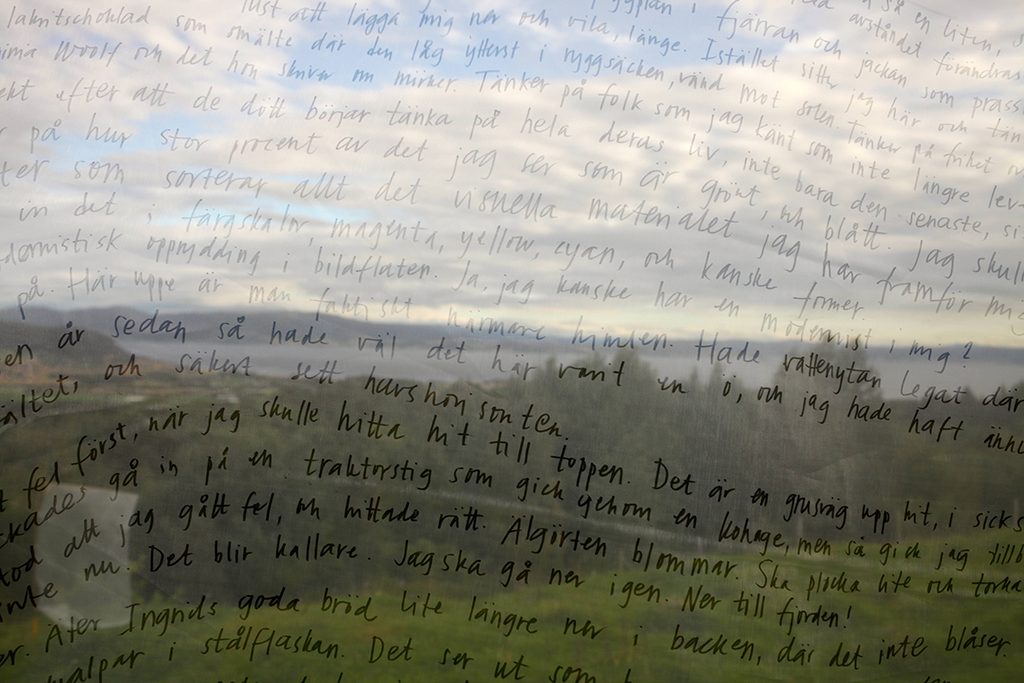 lakritschoklad som lust att lägga mig ner och vila, länge. i fjärran och avståndet så en liten,
Woolf och det hon skriver om mörker. som smälte där den låg ytterst i ryggsäcken, vänd mot solen. Istället sitter jag här och jackan som förändras
efter att de dött börjar tänka på hela deras liv, inte bara den senaste, Tänker på folk som jag känt som inte längre Tänker på frihet
på hur stor procent av det jag ser som är grönt, och blått. Jag
som sorterar allt det visuella materialet jag har framför
in det i färgskalor, magenta, yellow, cyan, och kanske former.
oppnydding i bildflaten. Ja, jag kanske har en modernist i mig?
på. Här uppe är man faktiskt närmare himlen. Hade vattenytan legat där
en år sedan så hade väl det här vart en ö, och jag hade haft
och säkert sett havshorisonten.
fel först, när jag skulle hitta hit till toppen. Det är en grusväg upp hit, i
gå in på en traktorstig som gick genom en kohage, men så gick jag
att jag gått fel, och hittade rätt. Älgörten blommar. Ska plocka lite och torka
inte nu. Det blir kallare. Jag ska gå ner igen. Ner till fjorden!
Äter Ingrids goda bröd lite längre ner i backen, där det inte blåser.
i stålflaskan. Det ser ut som